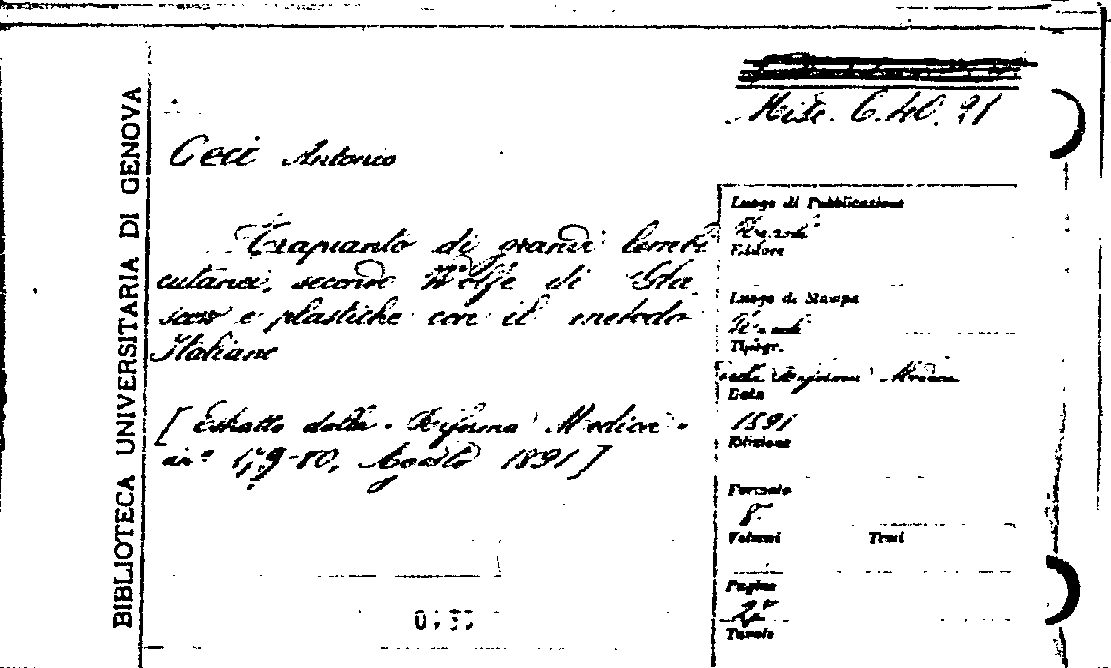 BIBLIOTECA UNIVERSITARIA DI GENOVA
Misc. C.40.21
Ceci Antonio
Trapianto di grandi lembi
cutanei, secondo Wolfe di Gla
scow e plastiche con il metodo
Italiano
[Estratto dalla "Riforma Medica"
nº 179-80, Agosto 1891]
Luogo di Pubblicazione
Napoli
Editore
Luogo di Stampa
Napoli
Tipogr.
della Riforma Medica
Data
1891
Edizione
Formato
8º
Volumi Tomi
Pagine
Tavole